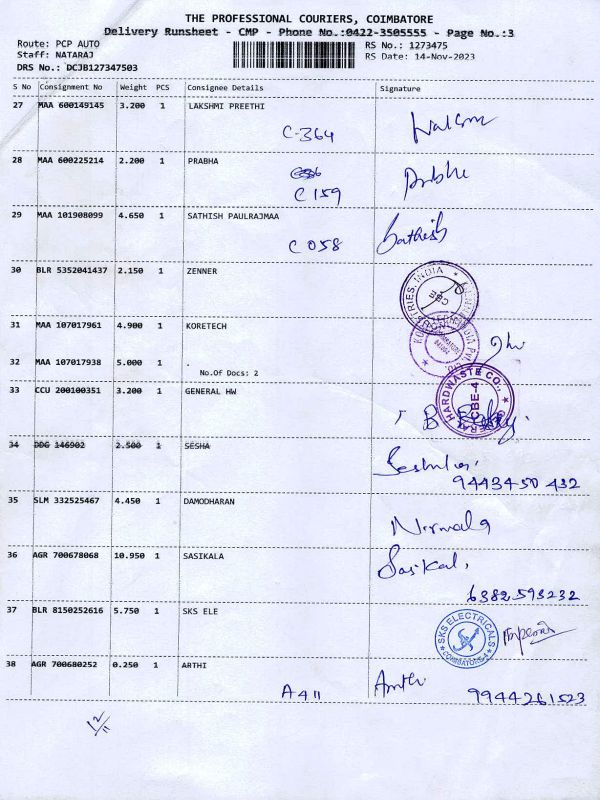 THE PROFESSIONAL COURIERS, COIMBATORE
Delivery Runsheet - CMP - Phone No.:0422-3505555 - Page No.:3
Route: PCP AUTO
Staff: NATARAJ
DRS No.: DCJB127347503
RS No.: 1273475
RS Date: 14-Nov-2023
S No Consignment No Weight PCS Consignee Details Signature
27 MAA 600149145 3.200 1 LAKSHMI PREETHI
C-364
28 MAA 600225214 2.200 1 PRABHA
C 159
29 MAA 101908099 4.650 1 SATHISH PAULRAJMAA
C 058 Sathish
30 BLR 5352041437 2.150 1 ZENNER
31 MAA 107017961 4.900 1 KORETECH
32 MAA 107017938 5.000 1 .
No.Of Docs: 2
33 CCU 200100351 3.200 1 GENERAL HW
GENERAL HARDWASTE CO., CBE-4
34 DDG 146902 2.500 1 SESHA
9443450 432
35 SLM 332525467 4.450 1 DAMODHARAN
Nirmala
36 AGR 700678068 10.950 1 SASIKALA
Sasikal.
6382 593232
37 BLR 8150252616 5.750 1 SKS ELE
SKS ELECTRICALS COIMBATORE-4
38 AGR 700680252 0.250 1 ARTHI
A 411 Arthi 9944261523